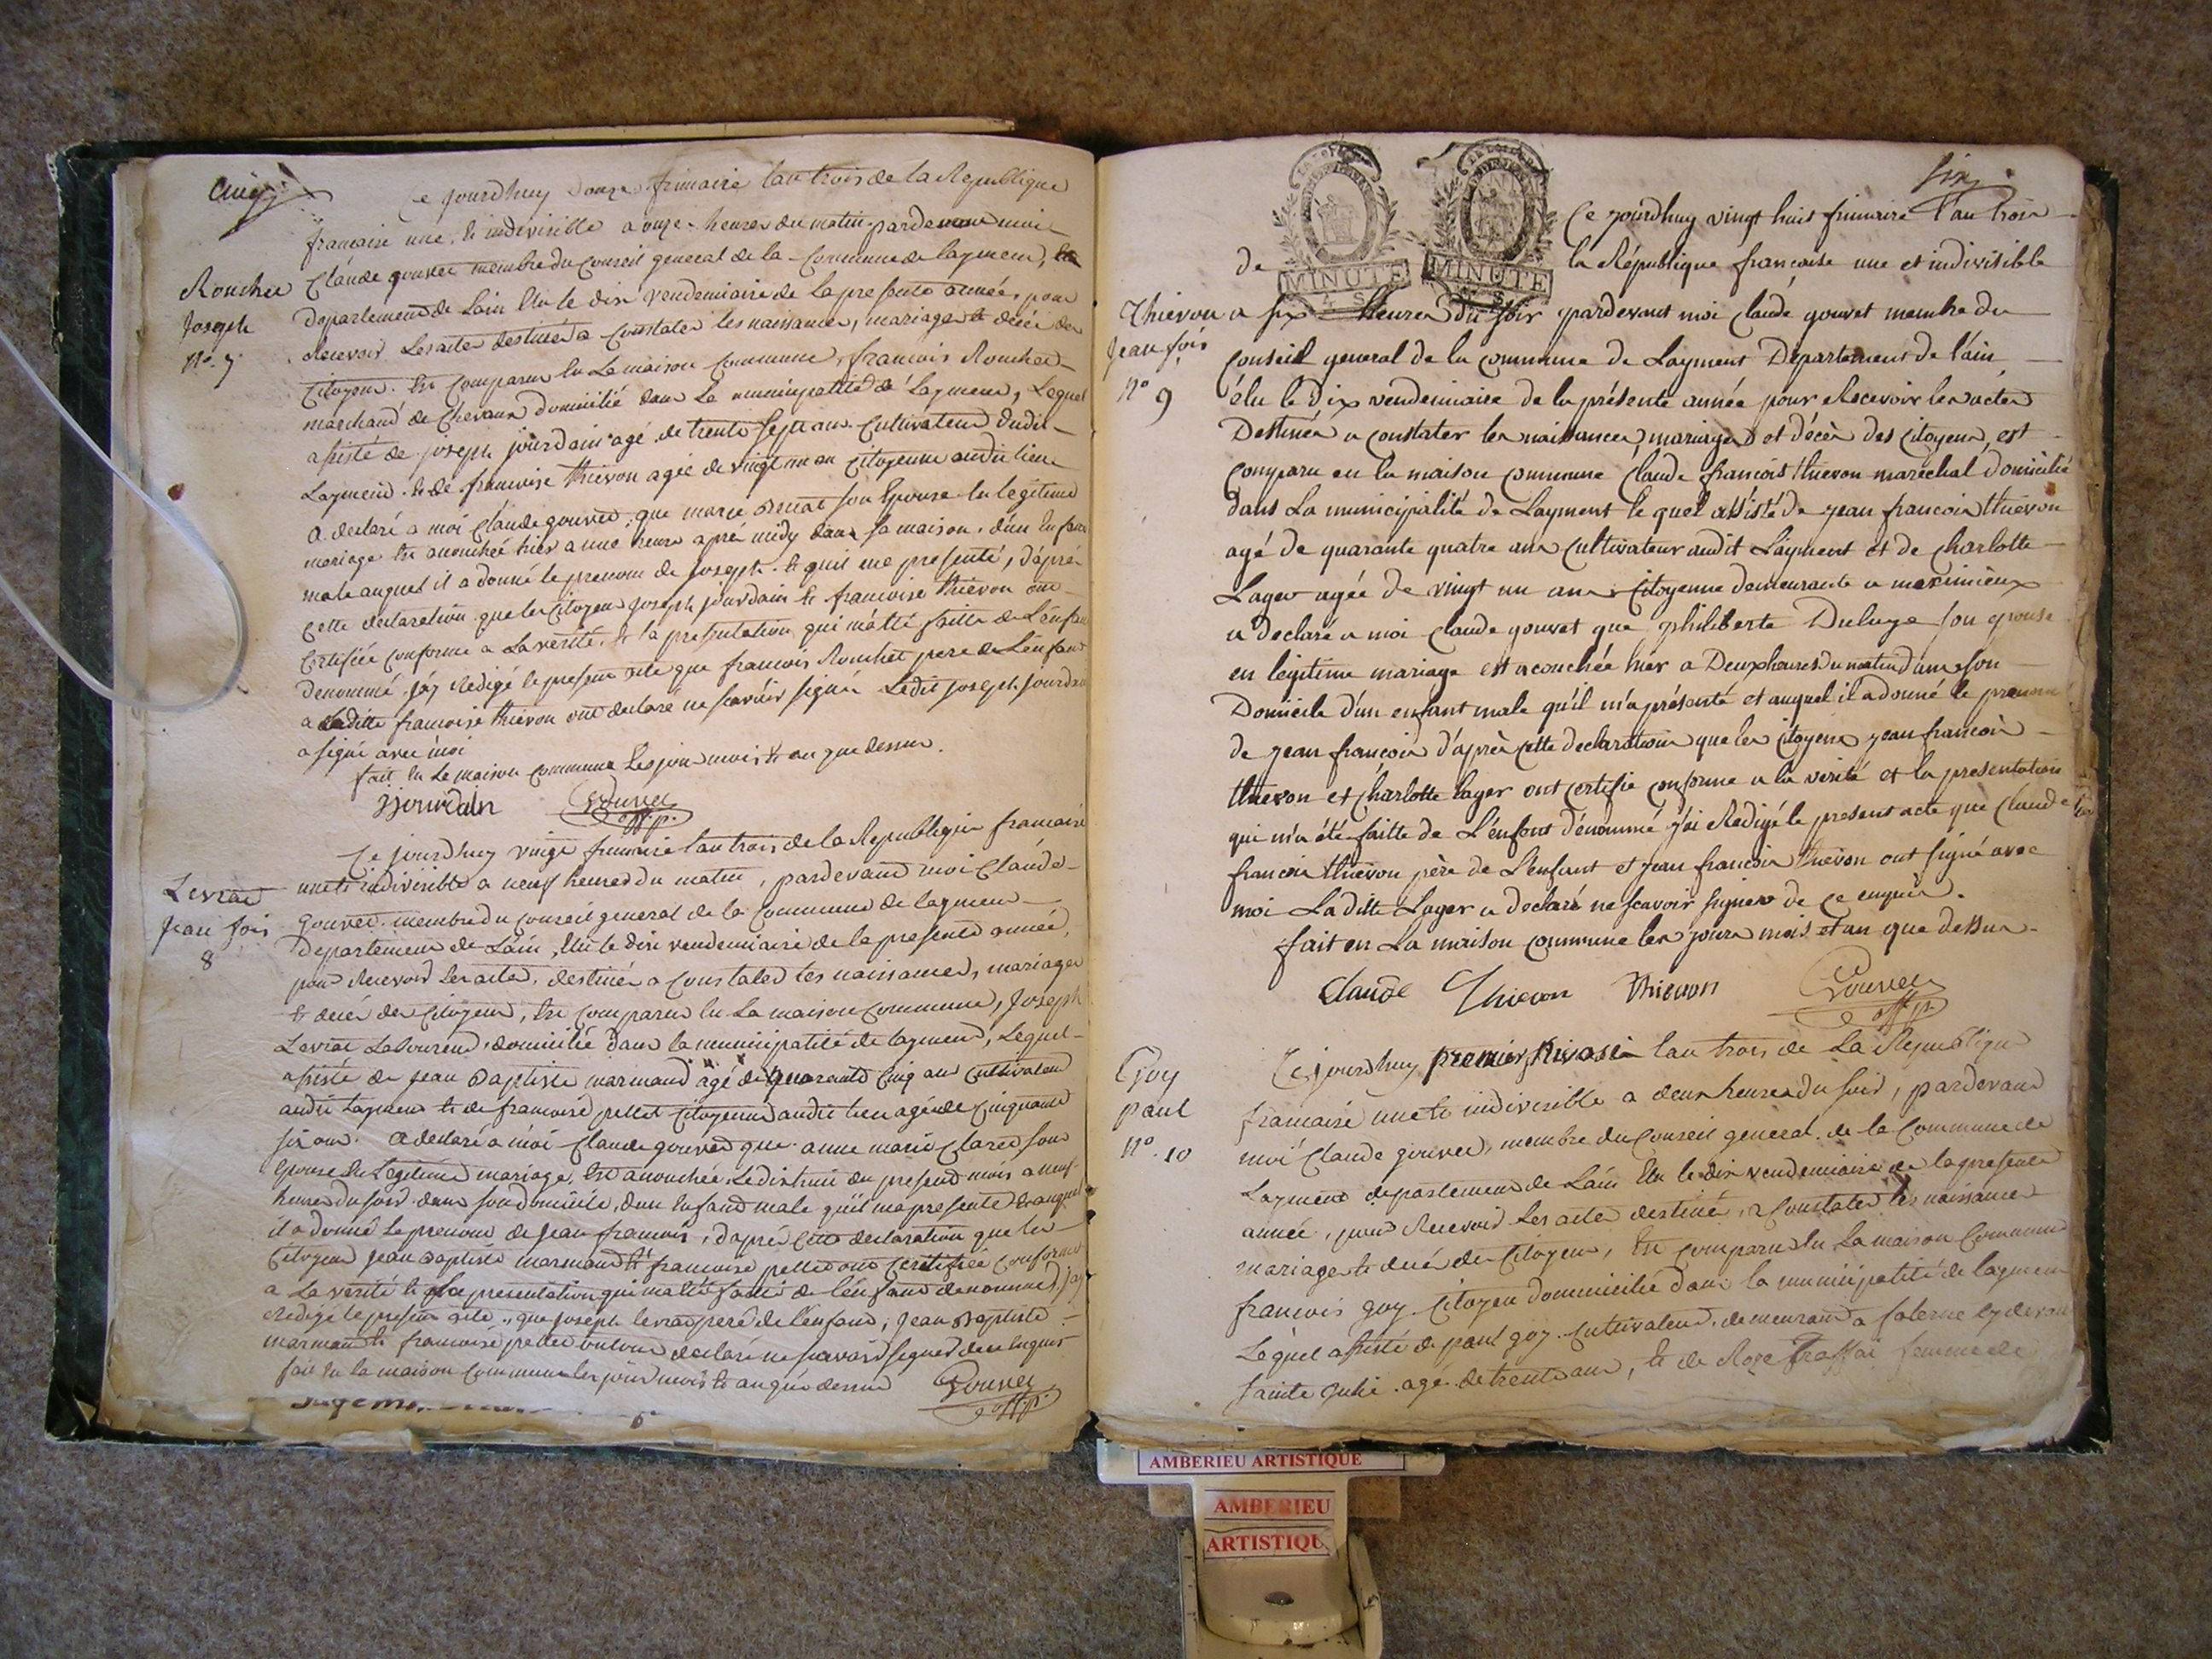 Cinq
Ce jourdhuy douze frimaire lan trois de la Republique
francaise une, et indivisible a onze heures du matin pardevant moi
Rouchet
Joseph
N° 7
Claude gouvet membre du Conseil general de la Commune de layment,
departement de Lain Elu le dix vendemiaire de la presente année, pour
Recevoir Les actes destinés a Constater les naissances, mariages et décès des
Citoyens. Est Comparu En La maison Commune, francois Rouchet
marchand de Chevaux domicilié dans La municipalité de Layment, Lequel
assisté de joseph jourdain agé de trente sept ans Cultivateur dudit
Layment. et de francoise thievon agée de vingt un an Citoyenne audit lieu
a declaré a moi Claude gouvet, que marie son Epouse En legitime
mariage Est acouchée hier a une heure après midy dans sa maison, d'un Enfant
male auquel il a donné le prenom de joseph. et quil me presenté, d'après
cette declaration que les Citoyens Joseph jourdain et francoise thievon ont
Certifiée conforme a La verité, et la presentation qui m'a été faitte de L'enfant
denommé, j'ay Redigé le present acte que francois Rouchet pere de L'enfant
a laditte francoise thievon ont declaré ne scavoir signer Ledit joseph jourdain
a signé avec moi
fait En La maison Commune Les jour mois et an que dessus.
jjourdain Gouvet
off. p.
Ce jourdhuy vingt frimaire lan trois de la Republique francaise
Levrat
Jean fois
8
une et indivisible a neuf heures du matin, pardevant moi Claude
gouvet membre du conseil general de la Commune de layment
Departement de Lain, Elu le dix vendemiaire de la presente année,
pour Recevoir les actes, destinés a Constater les naissances, mariages
et décés des Citoyens, Est Comparu En La maison Commune, Joseph
Levrat Laboureur domicilié dans la municipalité de layment, Lequel
assisté de jean Baptiste marmand agé de quarante Cinq ans Cultivateur
audit Layment et de francoise pellet Citoyenne audit lieu agée de Cinquante
six ans. a declaré a moi Claude gouvet que anne marie Claret son
Epouse En Legitime mariage, Est acouchée, Le dixhuit du present mois a neuf
heures du soir dans son domicile, dun Enfant male quil ma presenté et auquel
il a donné Le prenom de jean francois, d'après Cette declaration que les
Citoyens jean Baptiste marmand et francoise pellet ont Certifiée Conforme
a La verité et la presentation qui ma été faitte de lenfant denommé, j'ay
Redigé le present acte, que joseph levrat pere de L'enfant, jean Baptiste
marmand et francoise pellet ont declaré ne scavoir signer de ce Enquis
fait En la maison Commune les jour mois et an que dessus Gouvet
off. p.
Six
Ce jourdhuy vingt huit frimaire l'an trois
de la République francaise une et indivisible
MINUTE MINUTE
4 S S
Thievon
Jean fois
N° 9
a six heures du soir pardevant moi Claude gouvet membre du
conseil general de la commune de Layment Departement de l'ain
élu le dix vendemiaire de la présente année pour Recevoir les actes
Destinés a constater les naissances, mariages et décès des citoyens, est
comparu en la maison commune Claude francois thievon maréchal domicilié
dans La municipalité de Layment le quel assisté de jean francois thievon
agé de quarante quatre ans cultivateur audit Layment et de charlotte
Lager agée de vingt un ans Citoyenne demeurante a meximieux
a declaré a moi claude gouvet que philiberte Deluge son epouse
en legitime mariage est acouchée hier a Deux heures du matin dans son
Domicile d'un enfant male qu'il m'a présenté et auquel il a donné le prenom
de jean francois d'après cette declaration que les citoyens jean francois
thievon et charlotte lager ont certifie conforme a la verité et la presentation
qui m'a été faitte de L'enfant dénommé j'ai Redigé le present acte que claude
francois thievon père de L'enfant et jean francois thievon ont signé avec
moi La ditte Lager a declaré ne scavoir signer de ce enquis.
fait en La maison commune les jours mois et an que dessus.
Claude Thievon Thievon Gouvet
off. p.
Goy
paul
N° 10
Ce jourdhuy premier Nivose lan trois de La Republique
francaise une et indivisible a deux heures du soir, pardevant
moi Claude gouvet, membre du Conseil general de la Commune de
Layment departement de Lain Elu le dix vendemiaire de la presente
année, pour Recevoir Les actes destinés, a Constater les naissances
mariages et décés des Citoyens, Est Comparu En La maison Commune
francois goy Citoyen domicilié dans la municipalité de layment
Lequel assisté de paul goy Cultivateur, demeurant a cy devant
Sainte Julie agé de trente ans, et de Roze femme de
AMBERIEU ARTISTIQUE
AMBERIEU
ARTISTIQU